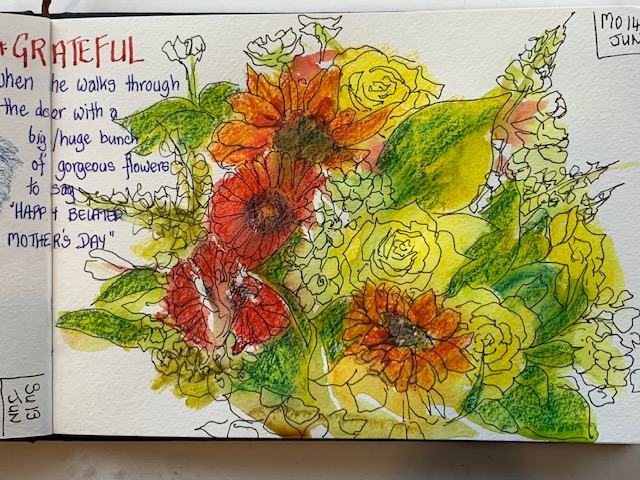 #GRATEFUL
when he walks through
the door with a
big/huge bunch
of gorgeous flowers
to say
"HAPPY BELATED
MOTHER'S DAY"
MO 14
JUN
SU 13
JUN